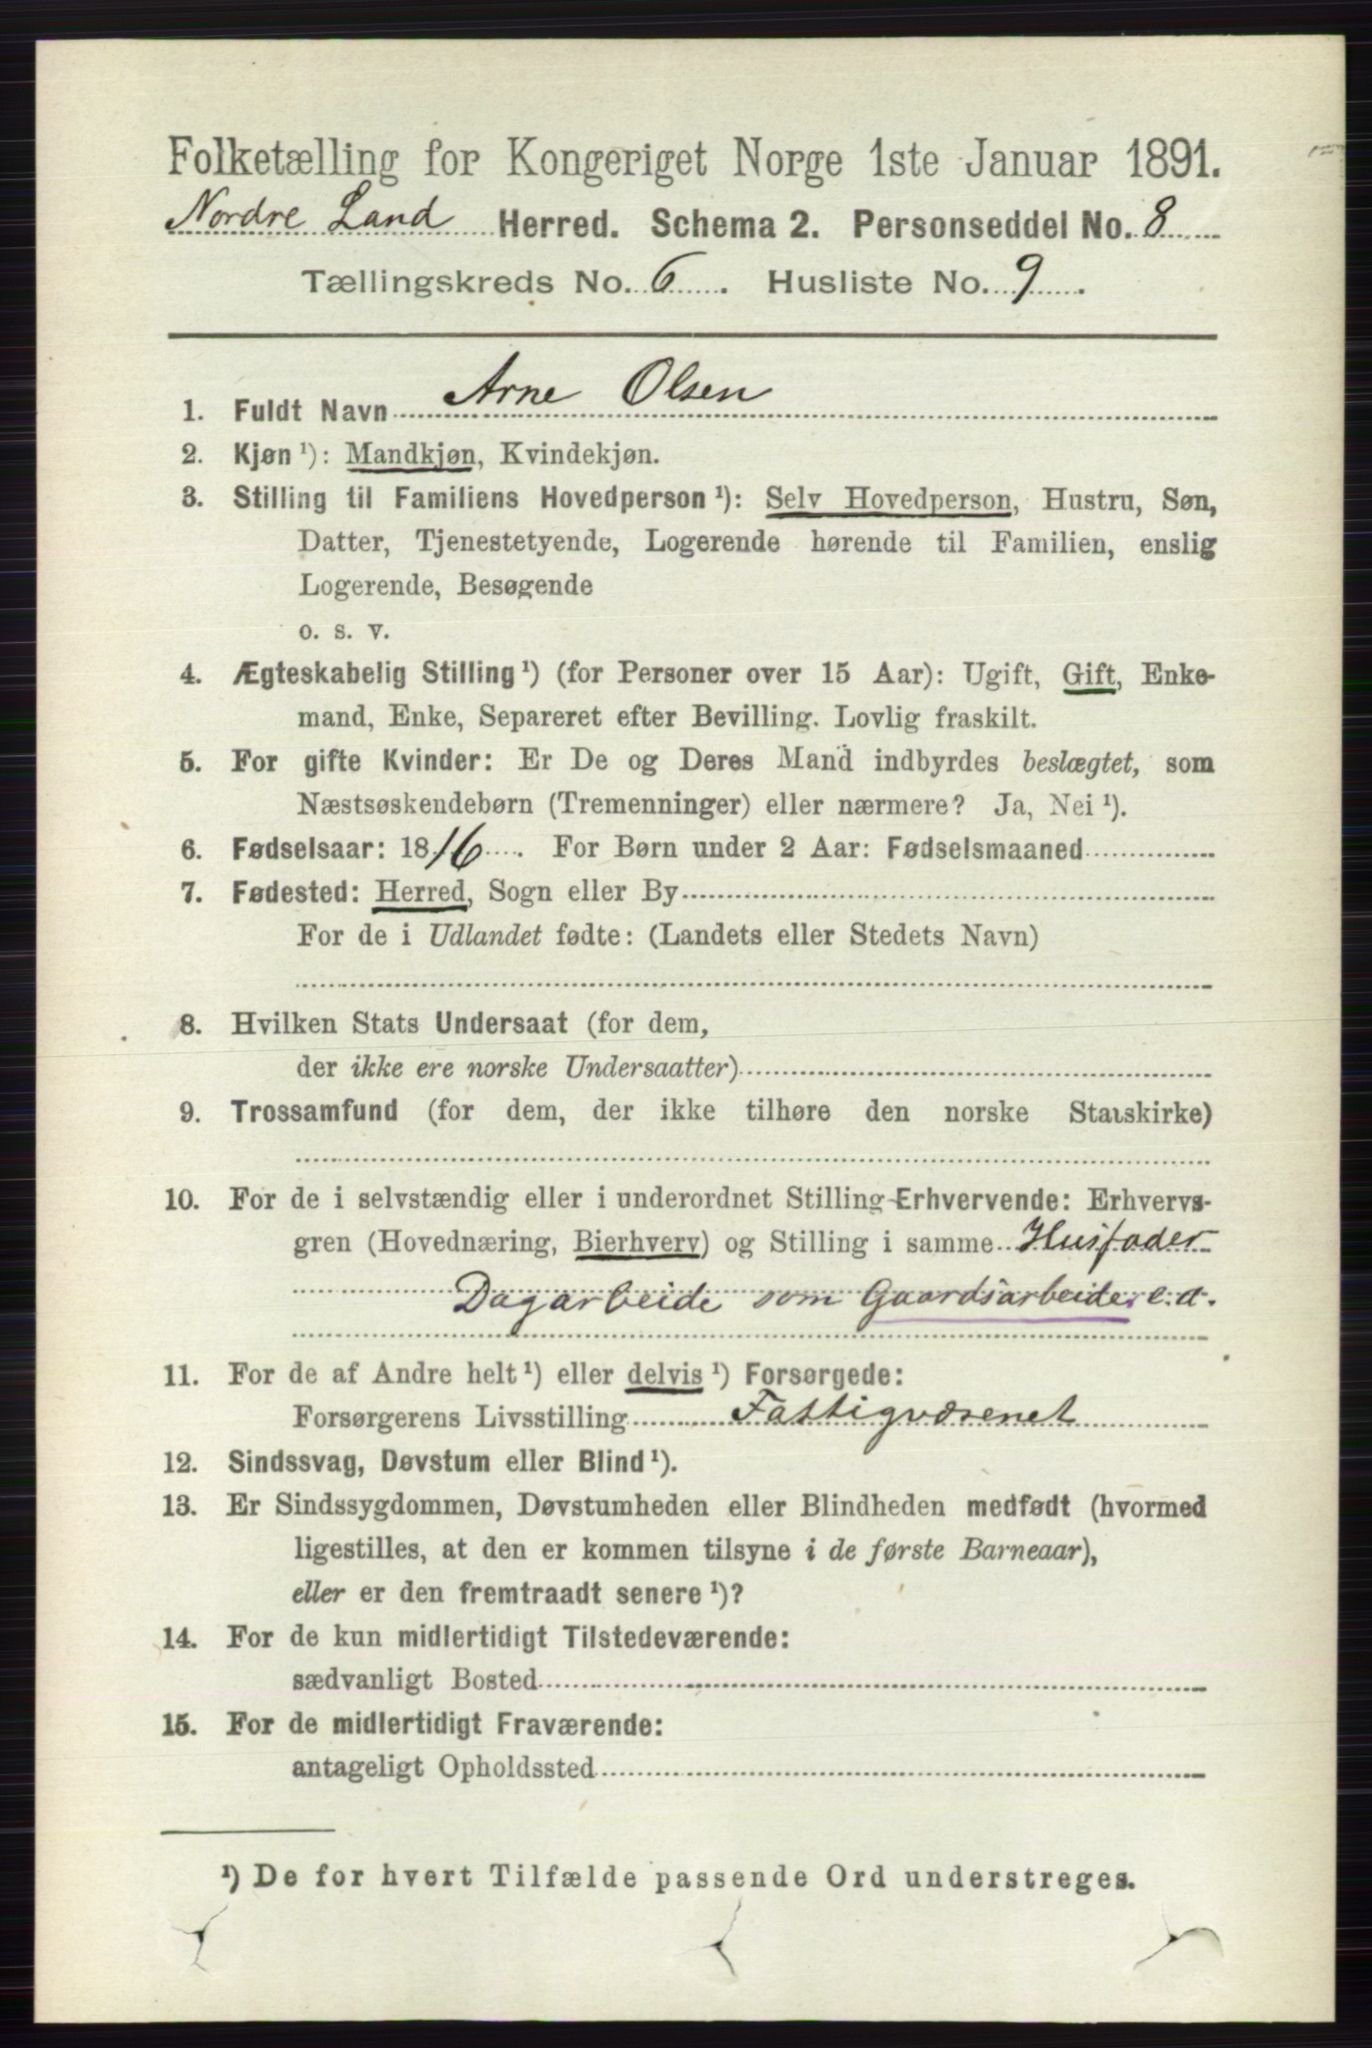 Folketælling for Kongeriget Norge 1ste Januar 1891.
Nordre Land Herred. Schema 2. Personseddel No. 8
Tællingskreds No. 6. Husliste No. 9.
1. Fuldt Navn Arne Olsen
2. Kjøn ¹): Mandkjøn, Kvindekjøn.
3. Stilling til Familiens Hovedperson ¹): Selv Hovedperson, Hustru, Søn,
Datter, Tjenestetyende, Logerende hørende til Familien, enslig
Logerende, Besøgende
o. s. v.
4. Ægteskabelig Stilling ¹) (for Personer over 15 Aar): Ugift, Gift, Enke-
mand, Enke, Separeret efter Bevilling. Lovlig fraskilt.
5. For gifte Kvinder: Er De og Deres Mand indbyrdes beslægtet, som
Næstsøskendebørn (Tremenninger) eller nærmere? Ja, Nei ¹).
6. Fødselsaar: 1816. For Børn under 2 Aar: Fødselsmaaned
7. Fødested: Herred, Sogn eller By
For de i Udlandet fødte: (Landets eller Stedets Navn)
8. Hvilken Stats Undersaat (for dem,
der ikke ere norske Undersaatter)
9. Trossamfund (for dem, der ikke tilhøre den norske Statskirke)
10. For de i selvstændig eller i underordnet Stilling Erhvervende: Erhvervs-
gren (Hovednæring, Bierhverv) og Stilling i samme Husfader
Dagarbeide som Gaardsarbeider e.a.
11. For de af Andre helt ¹) eller delvis ¹) Forsørgede:
Forsørgerens Livsstilling Fattigvæsenet
12. Sindssvag, Døvstum eller Blind ¹).
13. Er Sindssygdommen, Døvstumheden eller Blindheden medfødt (hvormed
ligestilles, at den er kommen tilsyne i de første Barneaar),
eller er den fremtraadt senere ¹)?
14. For de kun midlertidigt Tilstedeværende:
sædvanligt Bosted
15. For de midlertidigt Fraværende:
antageligt Opholdssted
¹) De for hvert Tilfælde passende Ord understreges.